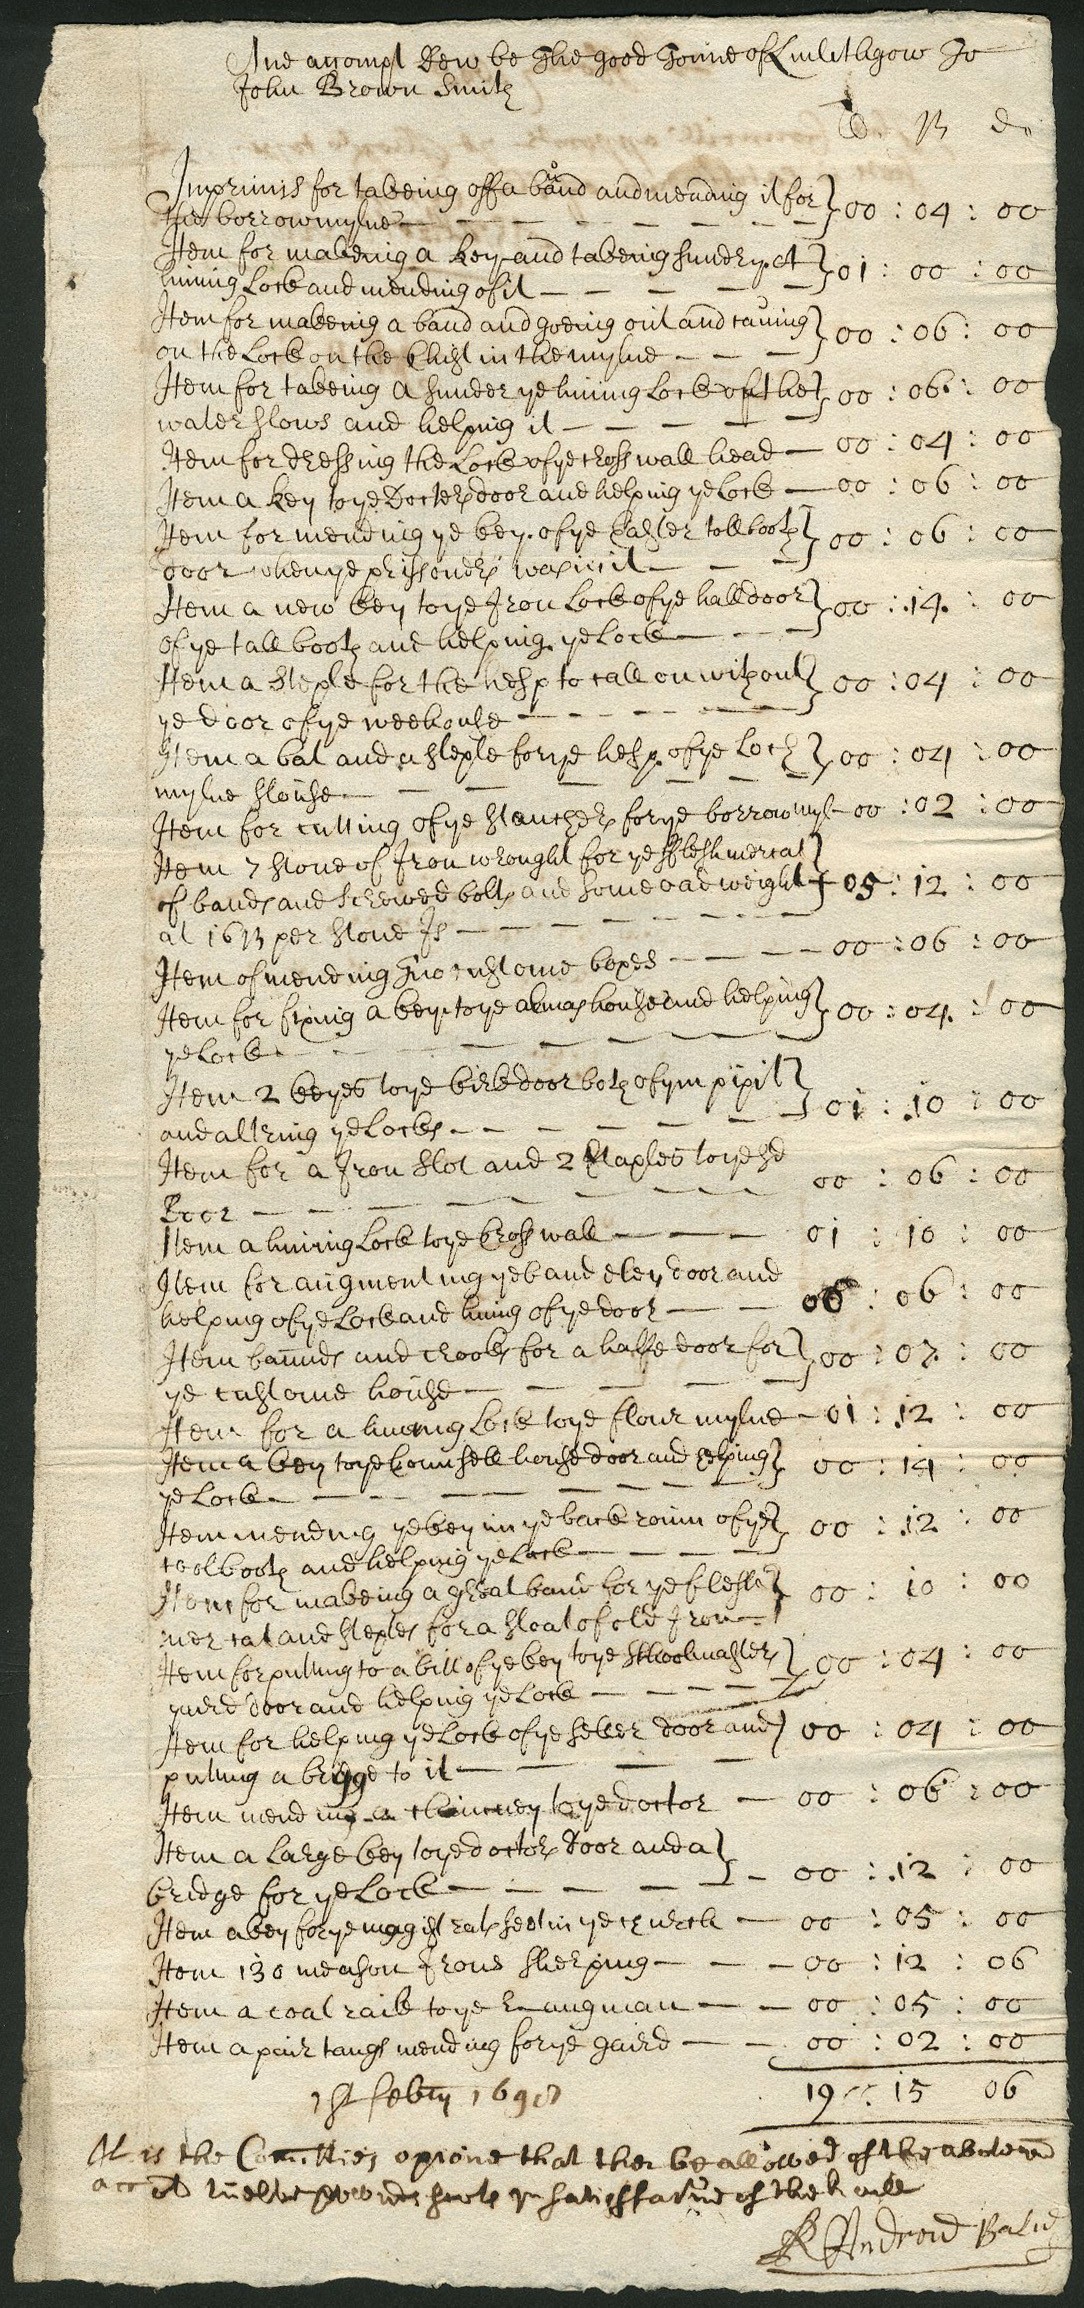 Ane accompt dew be The good Toune of Linlithgow To
John Brown Smith
lb. ß d.
Imprimis for takeing off a band and mending it for 00 : 04 : 00
the borrow mylne
Item for makeing a key and takeing sundry
hining Lock and mending of it 01 : 00 : 00
Item for makeing a band and goeing out and caving 00 : 06 : 00
on the Lock on the Chist in the mylne
Item for takeing a sunder ye hining Lock of the 00 : 06 : 00
water and helping it
Item for dressing the Lock of ye cross wall head 00 : 04 : 00
Item a key to ye Docters door and helping ye Lock 00 : 06 : 00
Item for mending ye key of ye tollbooth 00 : 06 : 00
door when ye prissoners was in it
Item a new key to ye Iron Lock of ye hall door 00 : 14 : 00
of ye tallbooth and helping ye Lock
Item a steple for the hesp to call on without 00 : 04 : 00
ye door of ye weehouse
Item a bat and a steple for ye hesp of ye Loch 00 : 04 : 00
mylne
Item for cutting of ye for ye borrow myl 00 : 02 : 00
Item 7 stone of Iron wrought for ye fflesh mercat
of bands and screwed bolts and some weight 05 : 12 : 00
at 16ß per stone Is
Item of mending two custome boxes 00 : 06 : 00
Item for fixing a key to ye almas house and helping 00 : 04 : 00
ye Lock
Item 2 keyes to ye kirk door both of ym
and altring ye Locks 01 : 10 : 00
Item for a Iron slot and 2 staples to ye sd 00 : 06 : 00
Door
Item a hining Lock to ye Cross wall 01 : 10 : 00
Item for augmenting ye band door and
helping of ye Lock and hining of ye door 00 : 06 : 00
Item baunds and crooks for a halfe door for 00 : 07 : 00
ye custome house
Item for a hining Lock to ye flour mylne 01 : 12 : 00
Item a key to ye Counsell house door and helping 00 : 14 : 00
ye Lock
Item mending ye key in ye back roum of ye 00 : 12 : 00
toolbooth and helping ye Lock
Item for makeing a great band for ye flesh 00 : 10 : 00
mercat and steples for a sloat of old Iron
Item for putting to a bitt of ye key to ye Schoolmasters 00 : 04 : 00
yaird door and helping ye Lock
Item for helping ye Lock of ye door and 00 : 04 : 00
putting a bridge to it
Item mending a chimney to ye doctor 00 : 06 : 00
Item a Large key to ye doctors door and a
bridge for ye Lock 00 : 12 : 00
Item a key for ye magistrats seat in ye church 00 : 05 : 00
Item 130 meason Irons sherping 00 : 12 : 06
Item a coal raik to ye hangman 00 : 05 : 00
Item a pair tangs mending for ye gaird 00 : 02 : 00
19 : 15 06
1st febry 1698
It is the Comitties opione that ther be allowed of the above
accot tuelve pounds scots in satisffatione of the haill
Androw